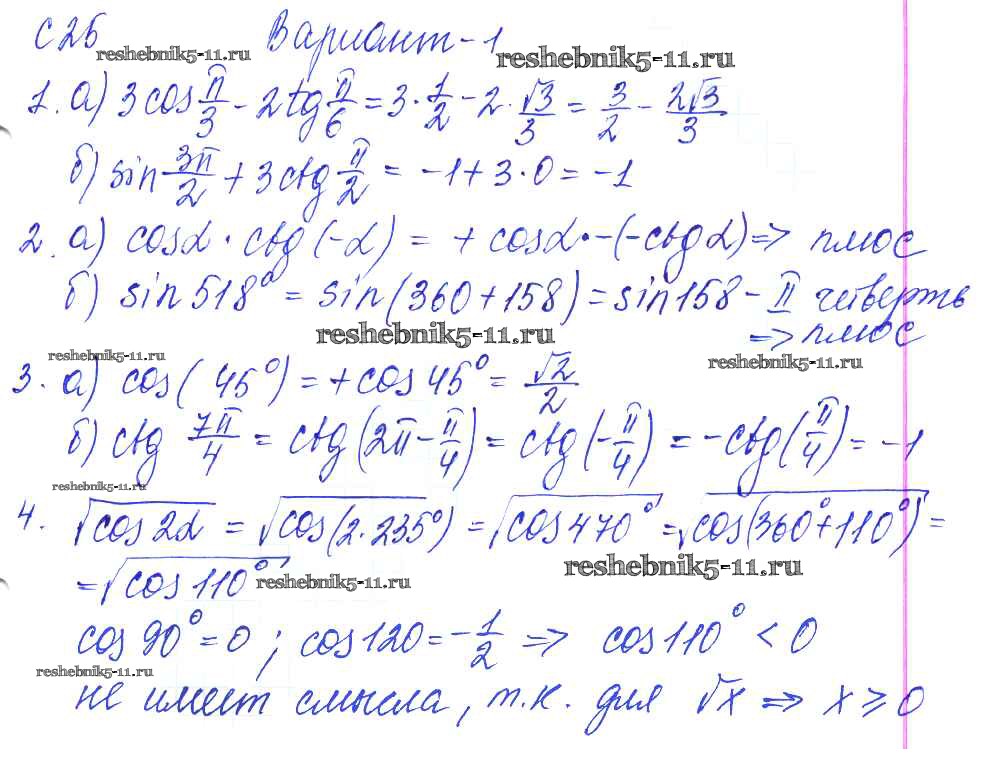 С 25 Вариант-1
reshebnik5-11.ru reshebnik5-11.ru
1. а) 3 cos π/3 - 2 tg π/6 = 3 · 1/2 - 2 · √3/3 = 3/2 - 2√3/3
б) sin 3π/2 + 3 ctg π/2 = -1 + 3 · 0 = -1
2. а) cos α · ctg (-α) = + cos α · -(-ctg α) => плюс
б) sin 518° = sin (360 + 158) = sin 158 - II четверть
reshebnik5-11.ru => плюс
reshebnik5-11.ru reshebnik5-11.ru
3. а) cos ( 45°) = + cos 45° = √2/2
б) ctg 7π/4 = ctg (2π - π/4) = ctg (-π/4) = -ctg (π/4) = -1
reshebnik5-11.ru
4. √cos 2α = √cos (2 · 235°) = √cos 470° = √cos (360° + 110°) =
= √cos 110° reshebnik5-11.ru reshebnik5-11.ru
cos 90° = 0 ; cos 120 = -1/2 => cos 110° < 0
reshebnik5-11.ru
не имеет смысла, т.к. для √x => x ≥ 0